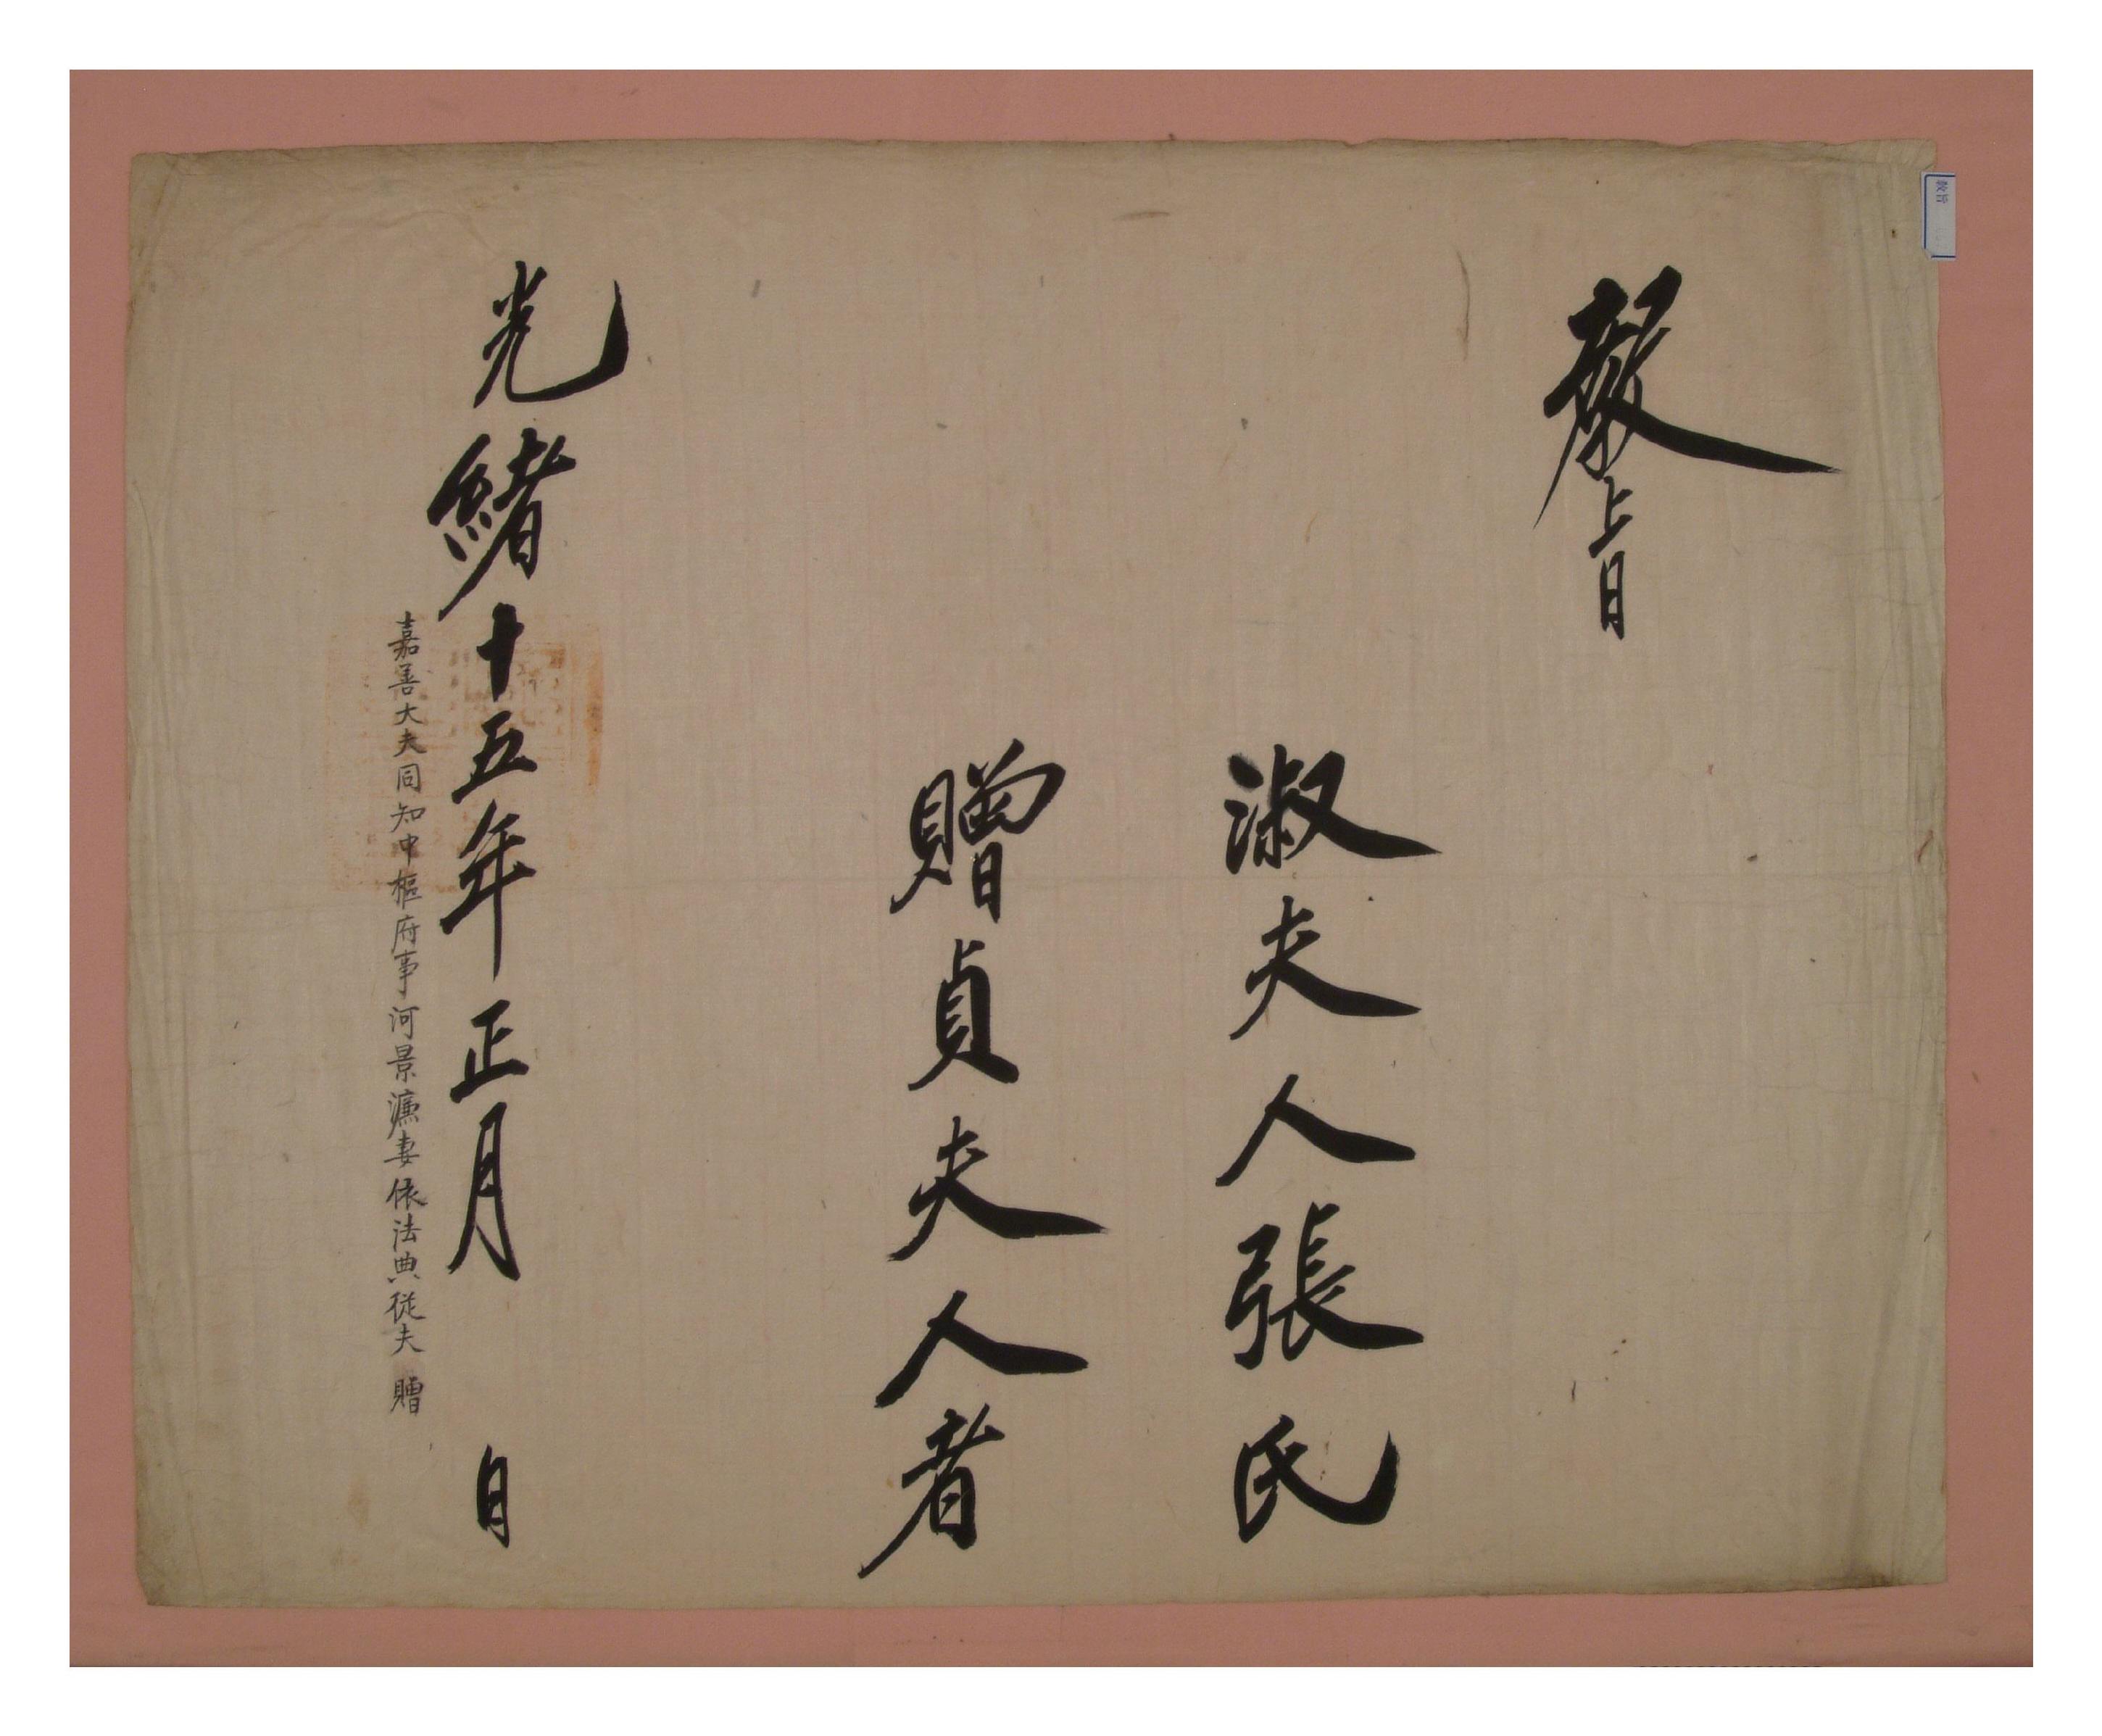 敎旨
淑夫人張氏
贈貞夫人者
光緖十五年正月　日
嘉善大夫同知中樞府事河景濂妻依法典從夫　贈
敎旨